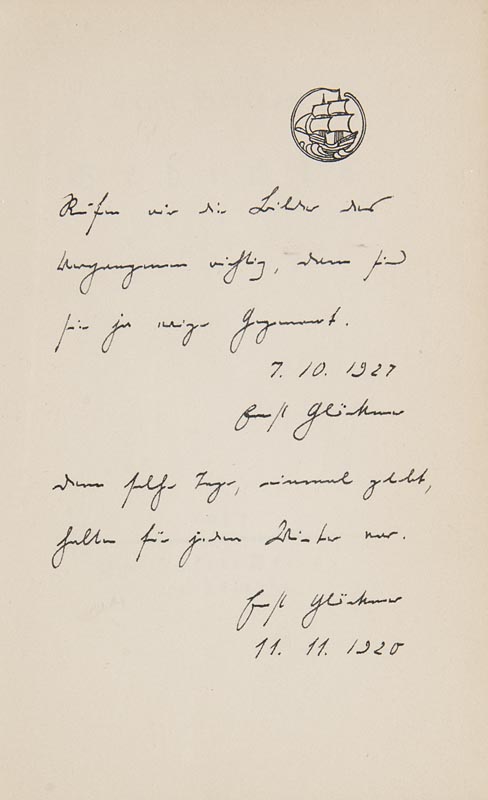 Rufen wir die Bilder des
Vergangenen richtig, dann sind
sie ja ewige Gegenwart.
7. 10. 1927
Ernst Glöckner
denn solche Tage, einmal gelebt,
halten für jeden Winter vor.
Ernst Glöckner
11. 11. 1920